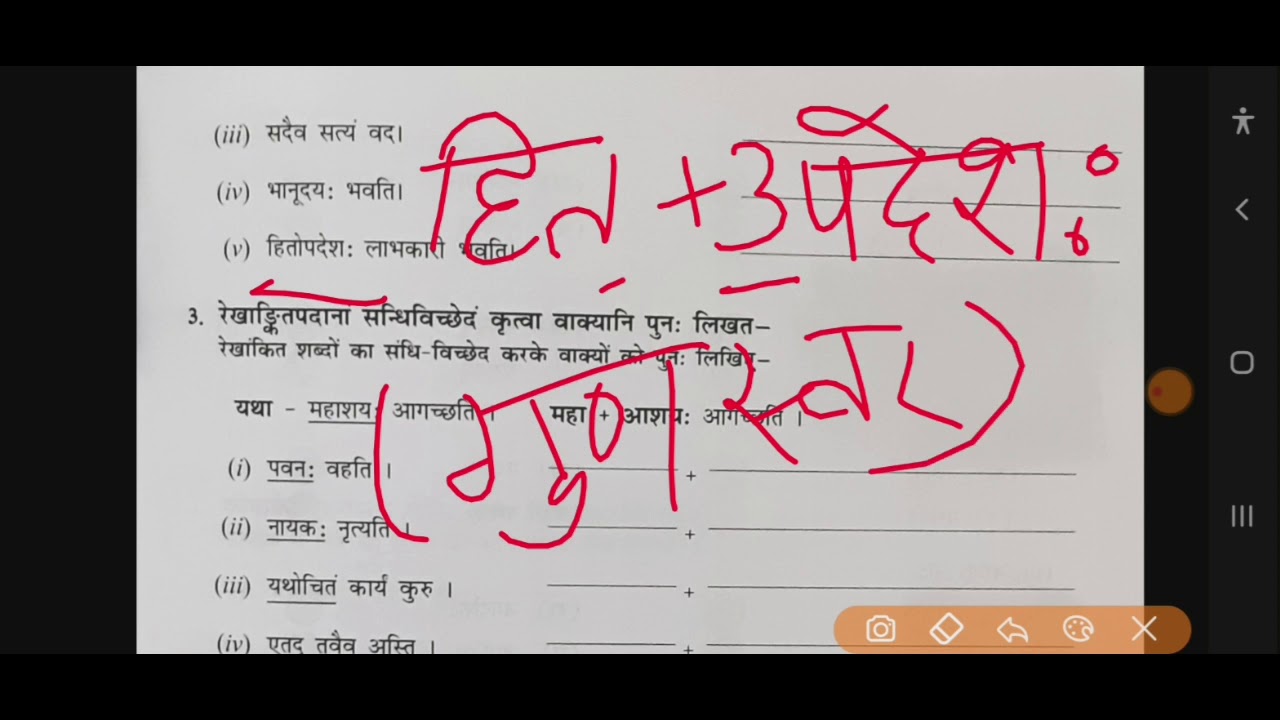 (iii) सदैव सत्यं वद।
(iv) भानूदयः भवति।
(v) हितोपदेशः लाभकारी भवति।
हित + उपदेशः
3. रेखाङ्कितपदानां सन्धिविच्छेदं कृत्वा वाक्यानि पुनः लिखत–
रेखांकित शब्दों का संधि-विच्छेद करके वाक्यों को पुनः लिखिए–
(गुण स्वर)
यथा - महाशयः आगच्छति । महा + आशयः आगच्छति ।
(i) पवनः वहति । +
(ii) नायकः नृत्यति । +
(iii) यथोचितं कार्यं कुरु । +
(iv) एतद् तवैव अस्ति । +